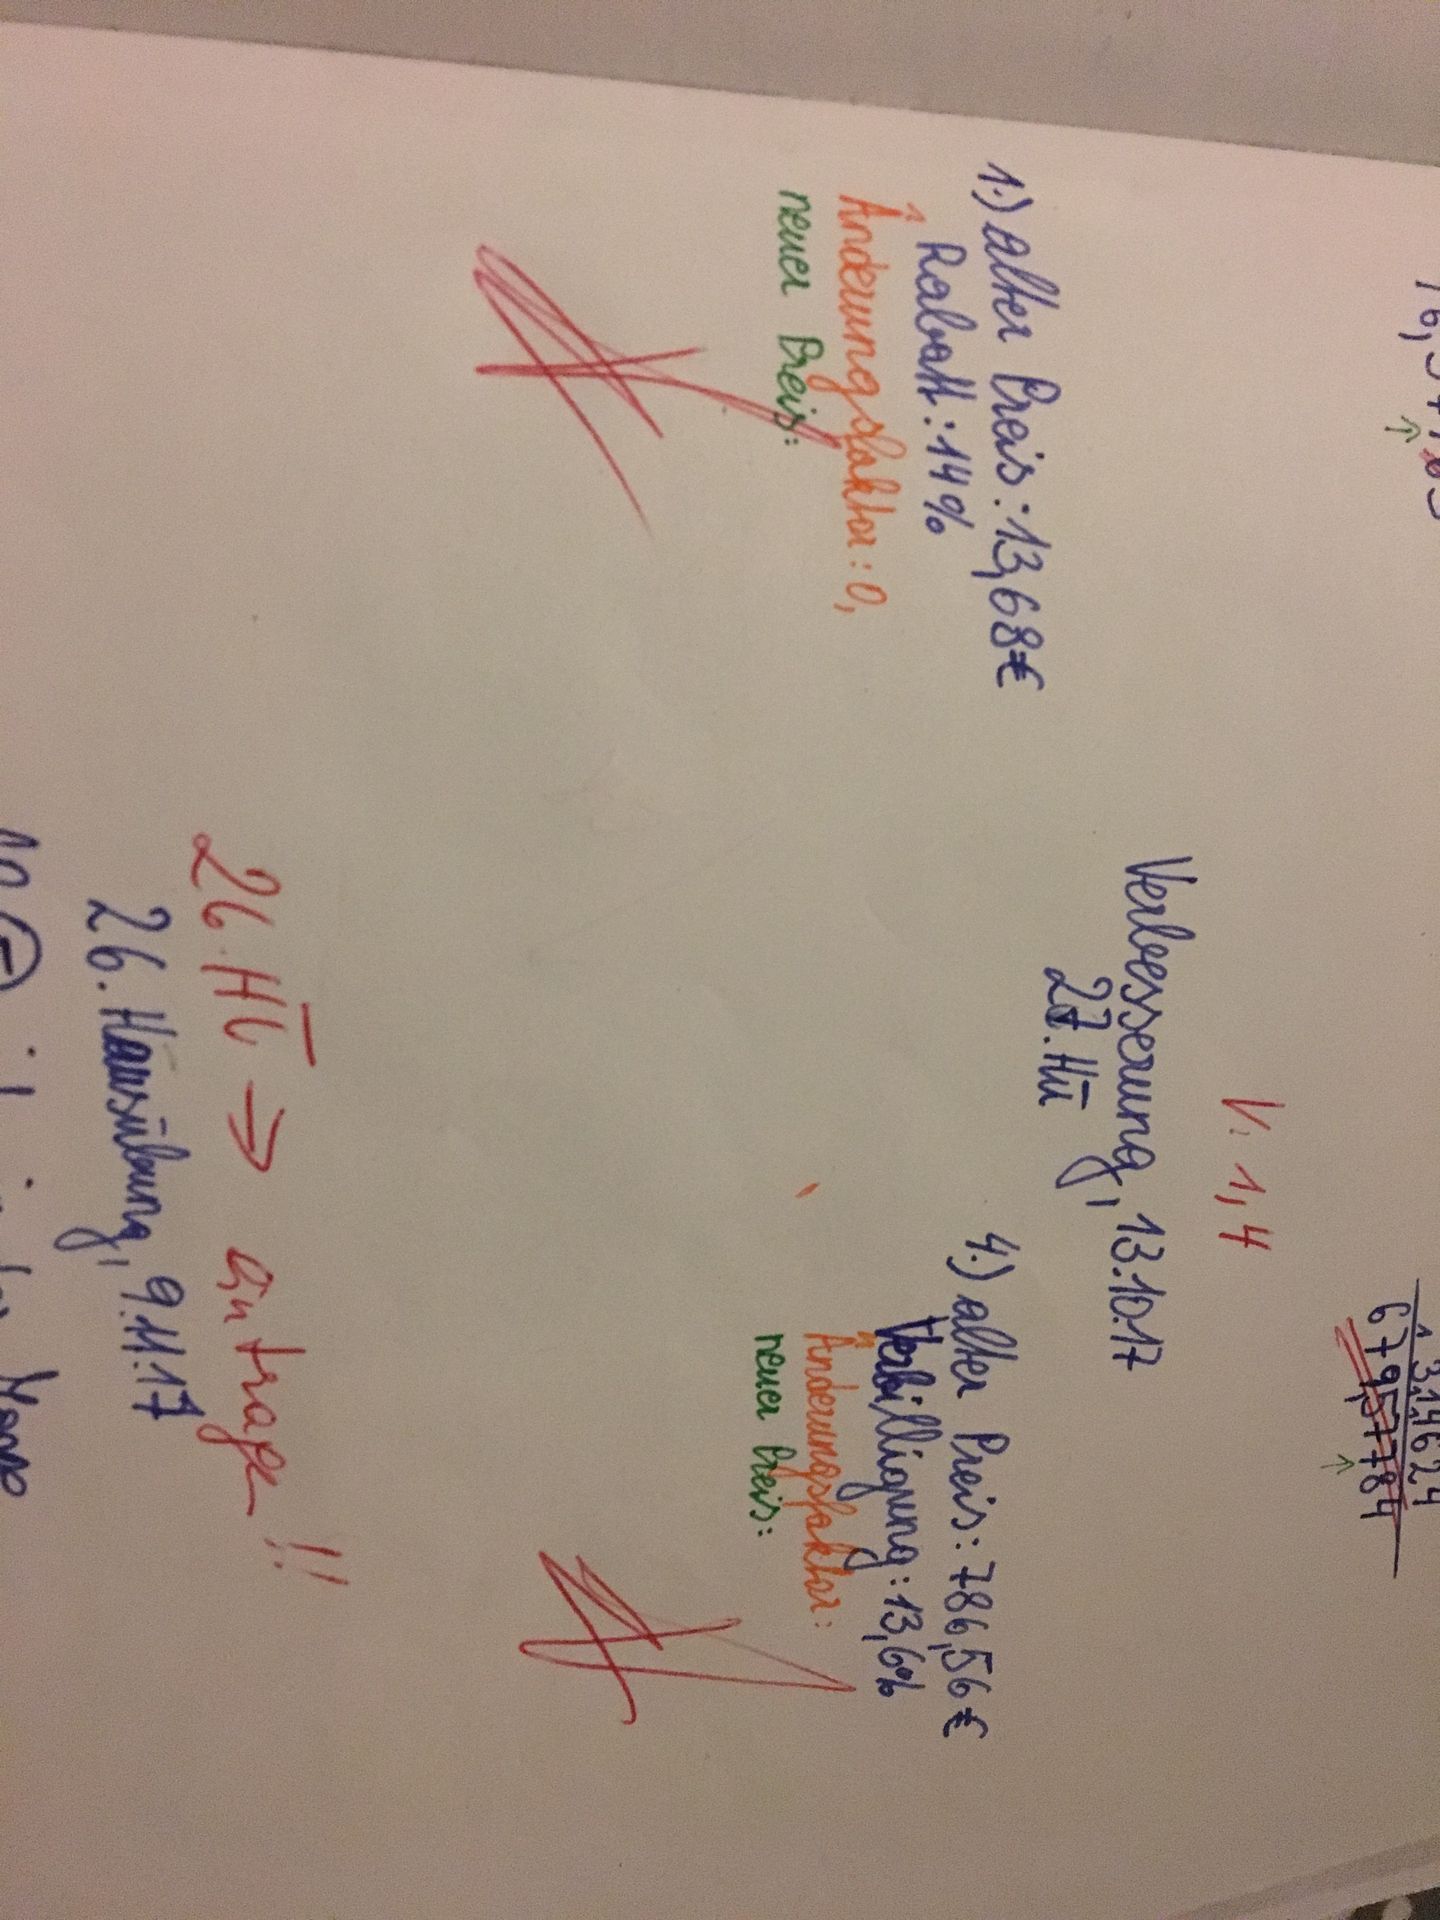 3,14624
6795,7784
V. 1,4
Verbesserung, 13.10.17
27. HÜ
1.) alter Preis: 13,68€
Rabatt: 14%
Änderungsfaktor: 0,
neuer Preis:
4.) alter Preis: 786,56€
Verbilligung: 13,6%
Änderungsfaktor:
neuer Preis:
26. HÜ → !!
26. Hausübung, 9.11.17